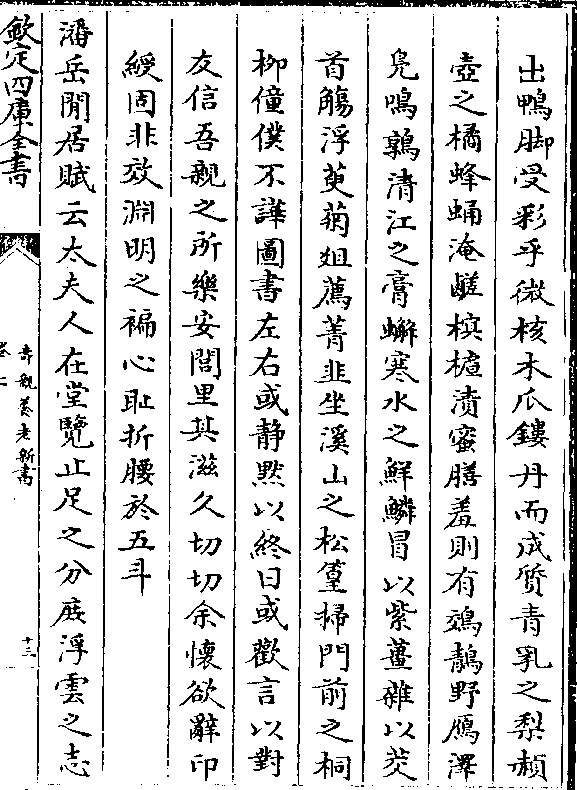 出鴨脚受彩乎微核木瓜鏤丹而成質青乳之梨頳
壺之橘蜂蛹淹醝榠樝漬蜜膳羞則有鵁鶄野鴈澤
鳬鳴鶉清江之膏蠏寒水之鮮鱗冒以紫薑雜以茭
首觴浮萸菊俎薦菁韭坐溪山之松篁掃門前之桐
柳僮僕不譁圖書左右或静黙以終日或歡言以對
友信吾親之所樂安閭里其滋久切切余懷欲辭印
綬固非效淵明之褊心耻折腰於五斗
潘岳閒居賦云太夫人在堂覽止足之分庶浮雲之志
欽定四庫全書
壽親養老新書
卷二
十三